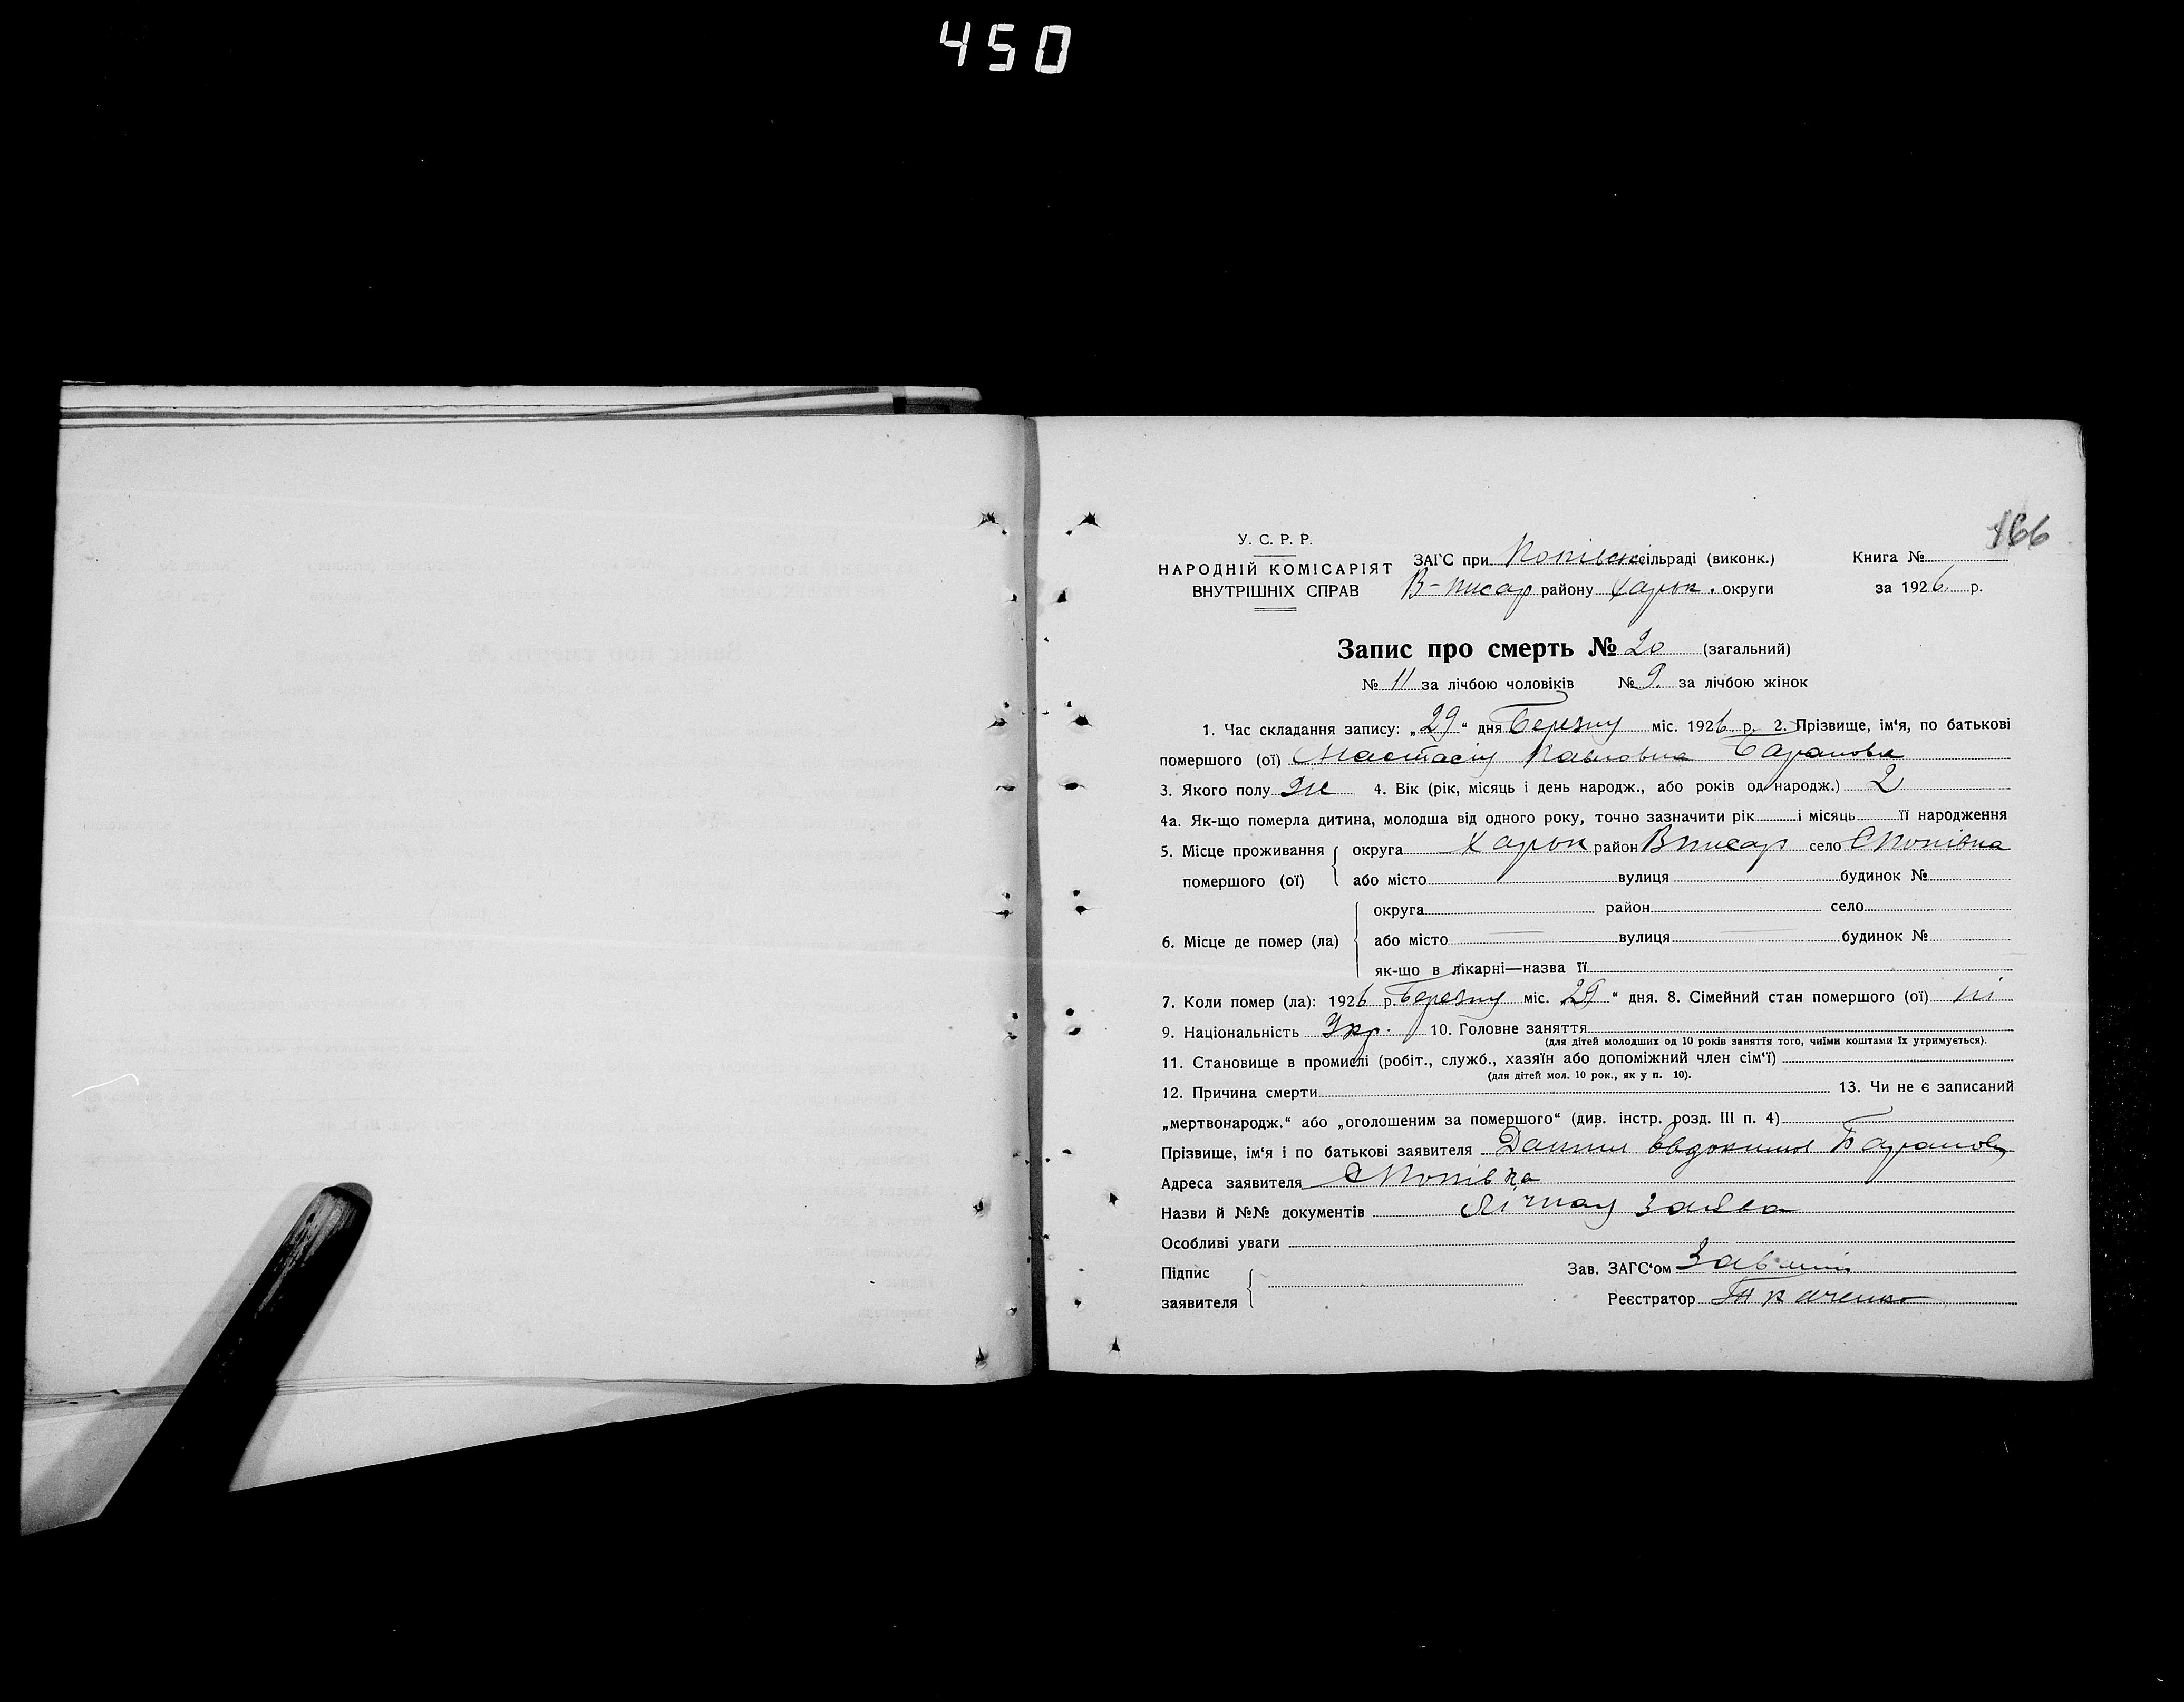 450
166
У. С. Р. Р.
НАРОДНІЙ КОМІСАРІЯТ
ВНУТРІШНІХ СПРАВ
ЗАГС при Попівск сільраді (виконк.)
В-писар району Харьк. округи
Книга №
за 1926 р.
Запис про смерть № 20 (загальний)
№ 11 за лічбою чоловіків № 9. за лічбою жінок
1. Час складання запису: „29“ дня Березну міс. 1926 р. 2. Прізвище, ім‘я, по батькові
помершого (ої) Настасія Павловна Баранова
3. Якого полу Же 4. Вік (рік, місяць і день народж., або років од народж.) 2
4а. Як-що померла дитина, молодша від одного року, точно зазначити рік і місяць її народження
5. Місце проживання помершого (ої) округа Харьк район Вписар село Попівка
або місто вулиця будинок №
6. Місце де помер (ла) округа район село
або місто вулиця будинок №
як-що в лікарні—назва її
7. Коли помер (ла): 1926 р. Березну міс. „29“ дня. 8. Сімейний стан помершого (ої) ні
9. Національність Укр. 10. Головне заняття
(для дітей молодших од 10 років заняття того, чиїми коштами їх утримується).
11. Становище в промислі (робіт., служб., хазяїн або допоміжний член сім‘ї)
(для дітей мол. 10 рок., як у п. 10).
12. Причина смерти 13. Чи не є записаний
„мертвонародж.“ або „оголошеним за помершого“ (див. інстр. розд. III п. 4)
Прізвище, ім‘я і по батькові заявителя Данил Овдокимов Баранов
Адреса заявителя Попівка
Назви й №№ документів Лічная Заява
Особливі уваги
Підпис
заявителя
Зав. ЗАГС‘ом
Реєстратор Ткаченко